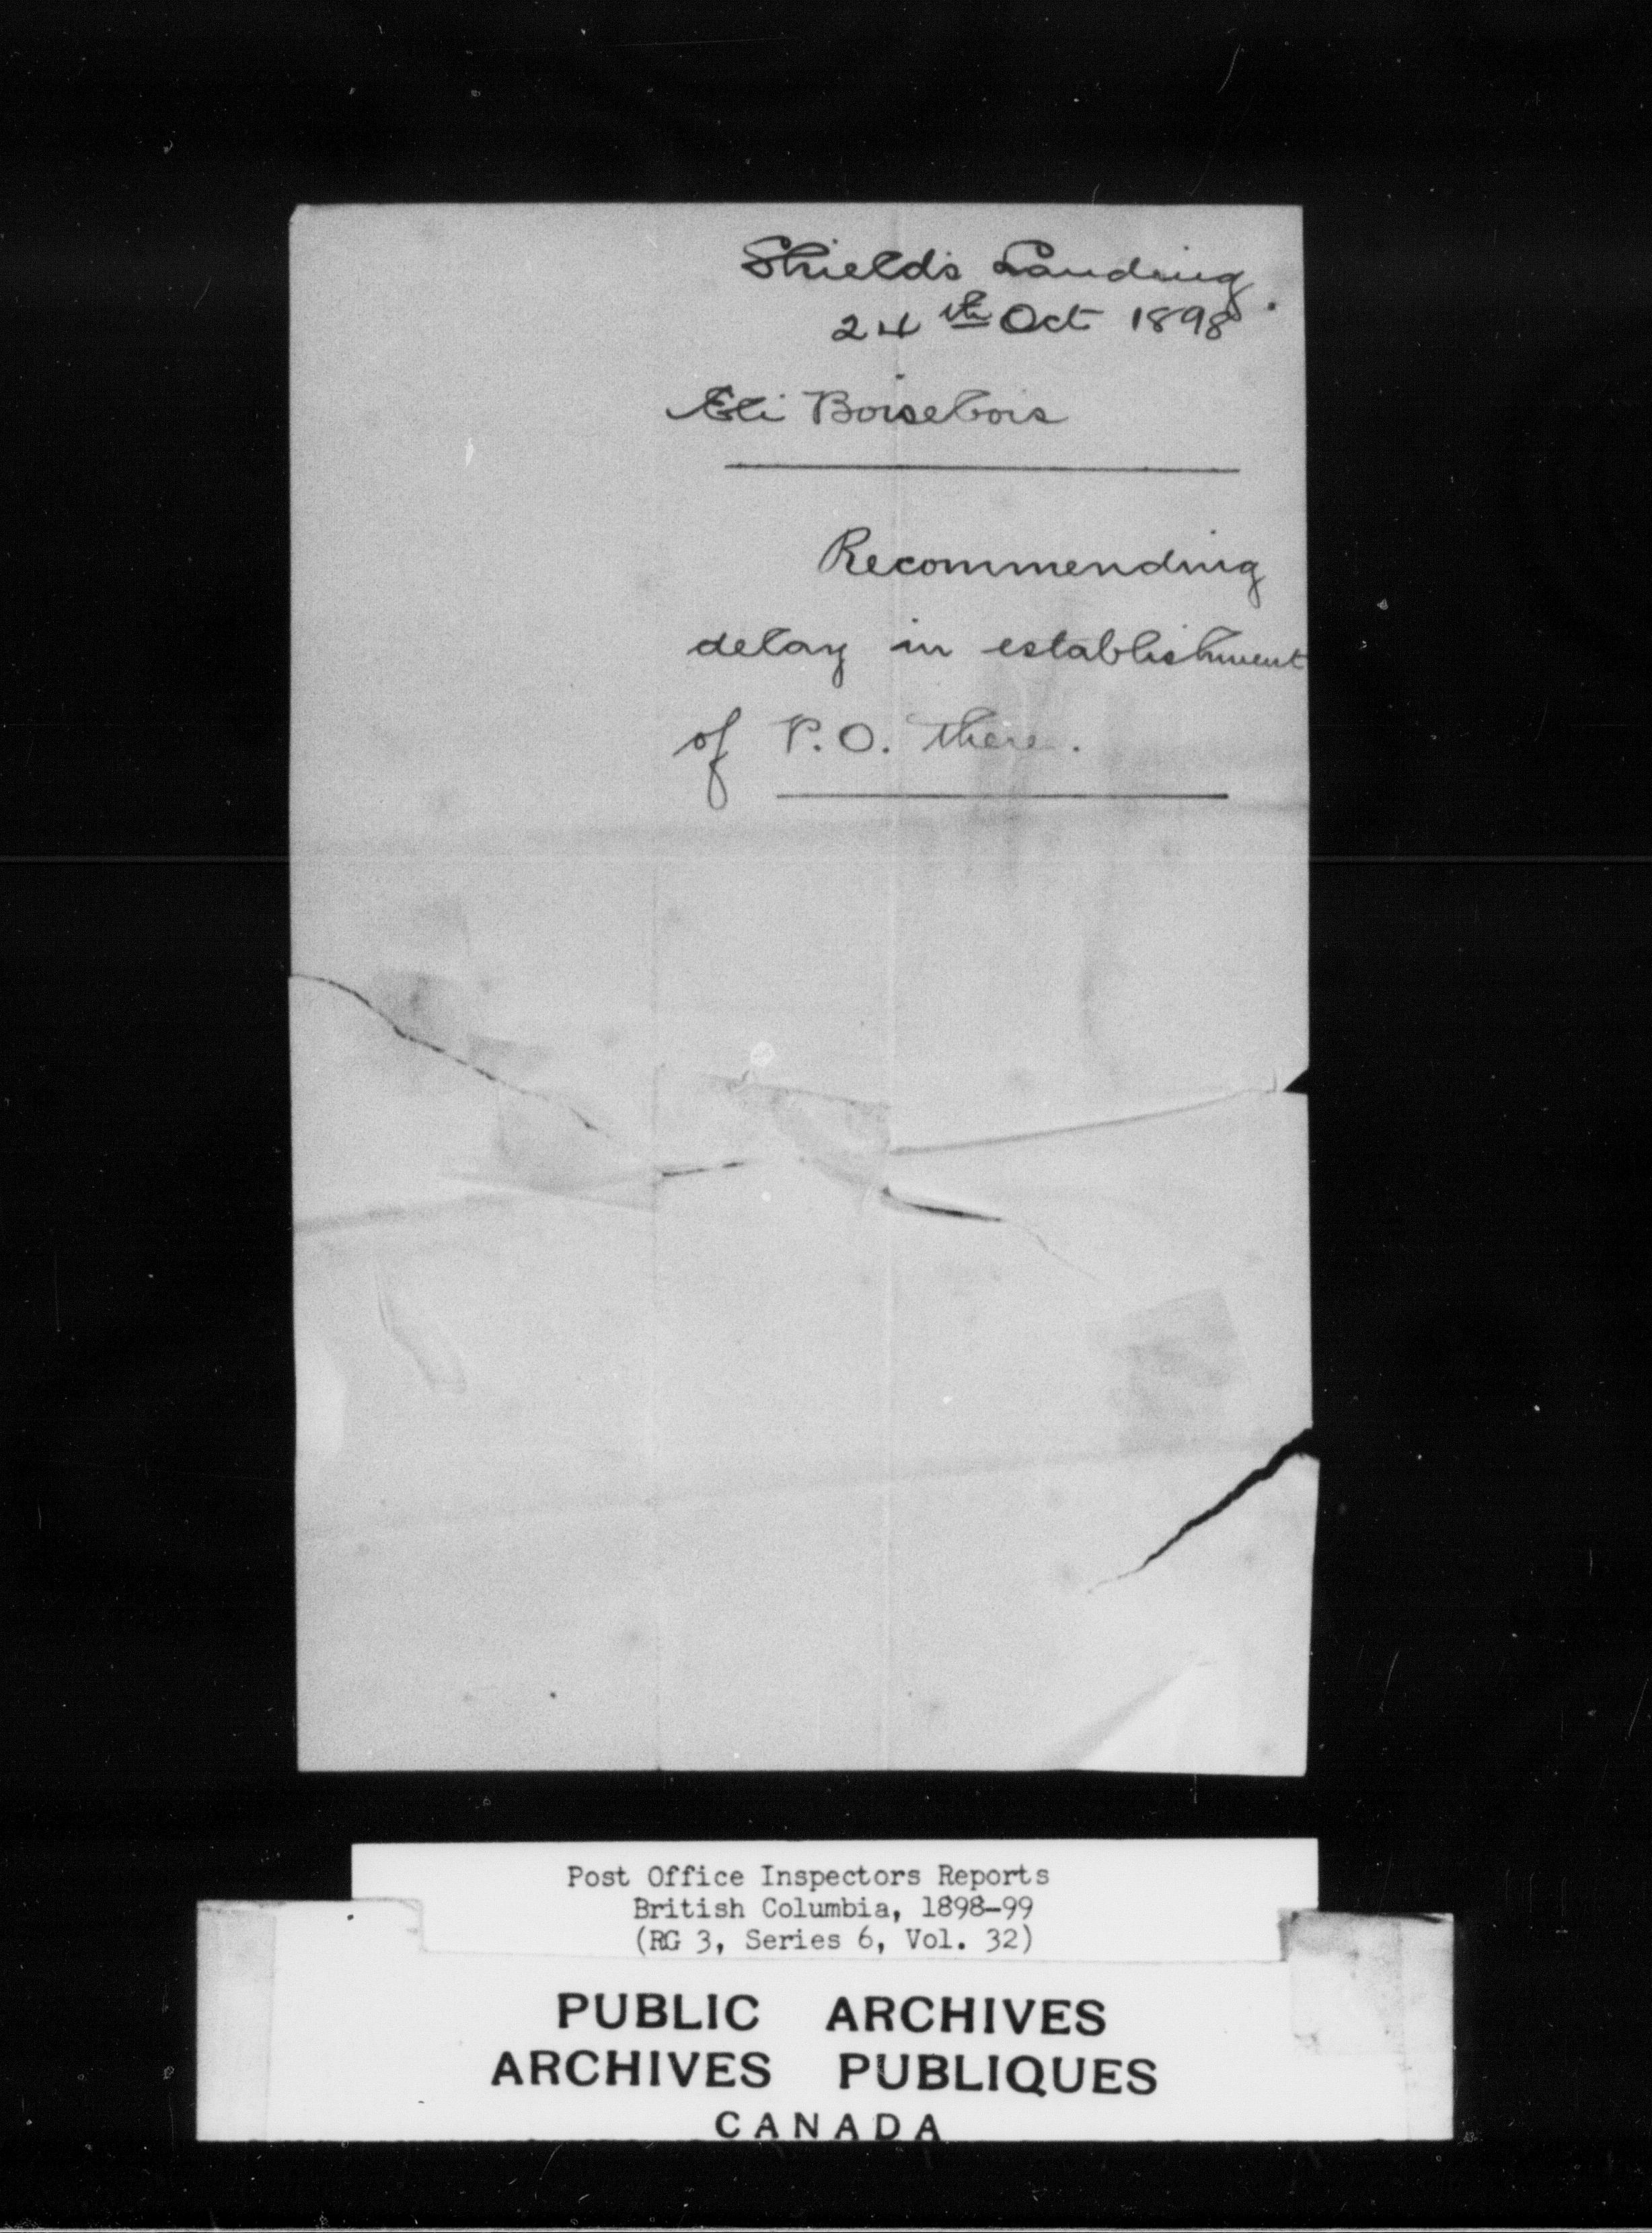 Shields Landing.
24th Oct 1898
Eli Boisebois
Recommending
delay in establishment
of P.O. there.
Post Office Inspectors Reports
British Columbia, 1898-99
(RG 3, Series 6, Vol. 32)
PUBLIC ARCHIVES
ARCHIVES PUBLIQUES
CANADA